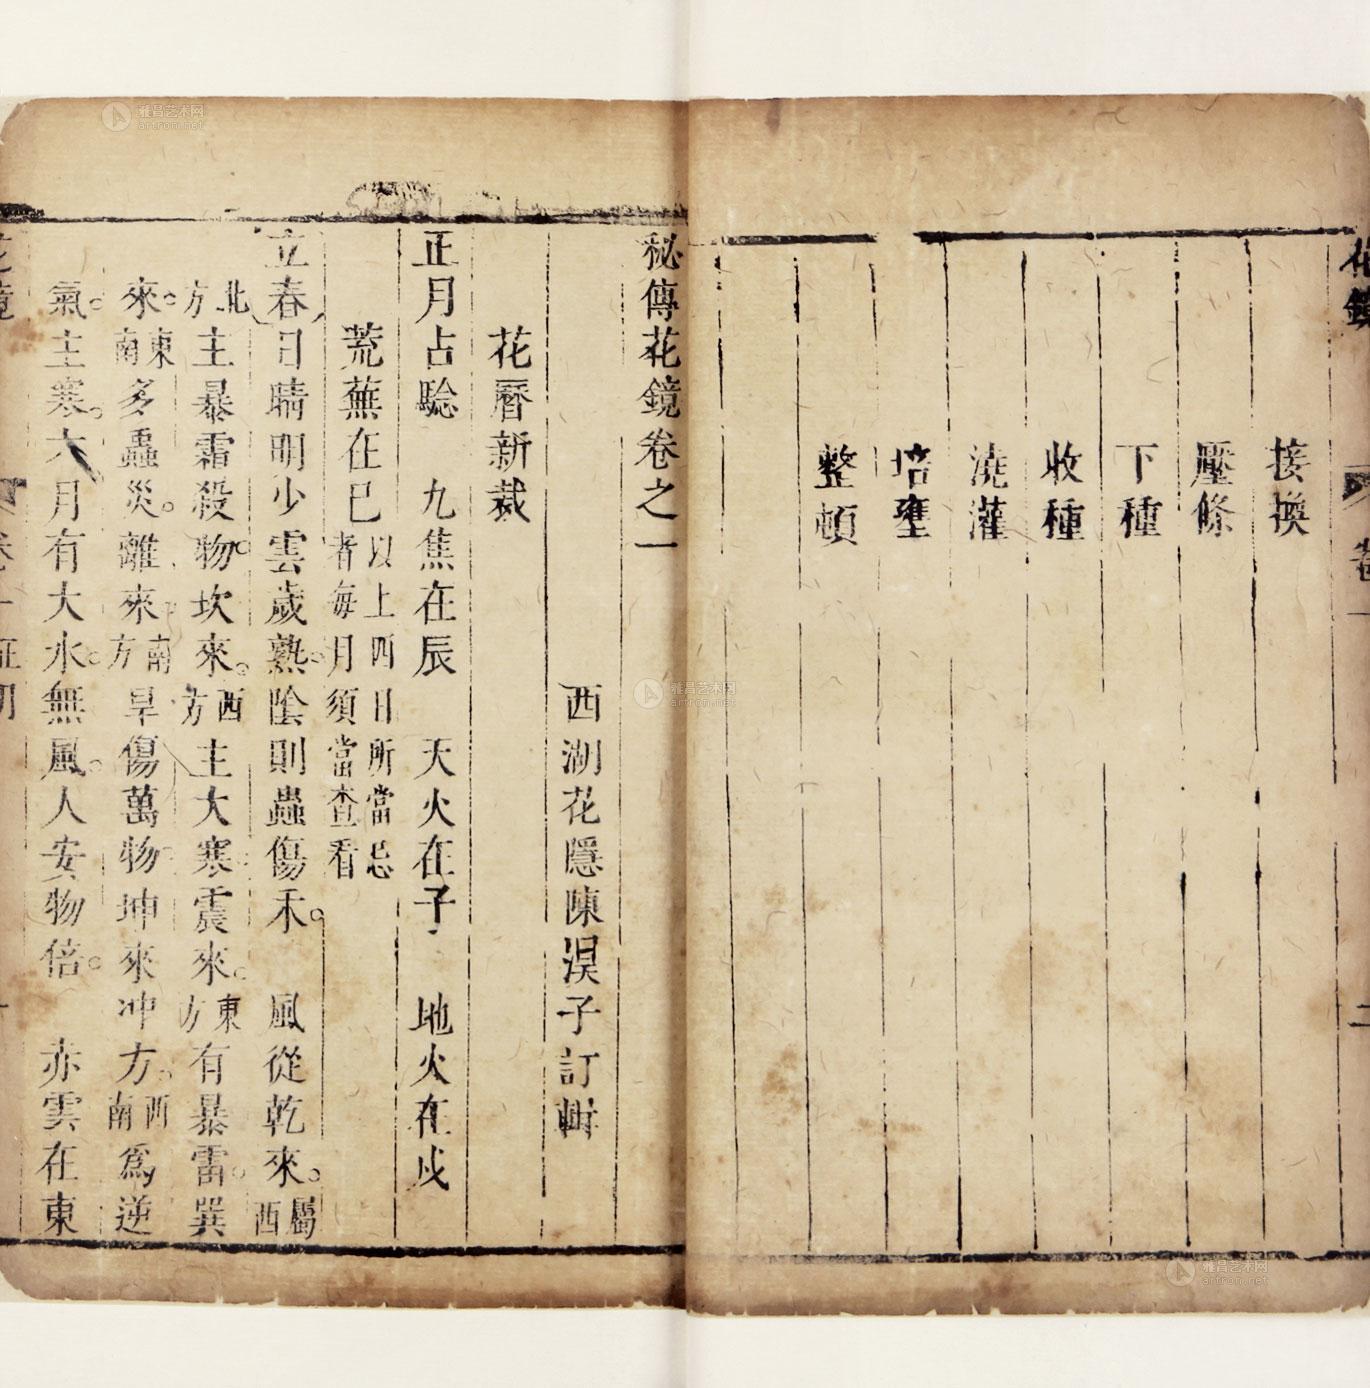 花鏡 卷一 二
接換
壓條
下種
收種
澆灌
培壅
整頓
秘傳花鏡卷之一
西湖花隱陳淏子訂輯
花曆新裁
正月占驗 九焦在辰 天火在子 地火在戌
荒蕪在巳以上四日所當忌者每月須當查看
立春日晴明少雲歲熟。陰則蟲傷禾。 風從乾來。屬西
北方主暴霜殺物。坎來。西方主大寒震來。東方有暴雷。巽
來。東南多蟲災。離來南方旱傷萬物坤來冲方。西南爲逆
氣。主寒。六月有大水。無風。人安物倍。 赤雲在東
花鏡 卷一 一
雅昌艺术网
artron.net
雅昌艺术网
artron.net
雅昌艺术网
artron.net